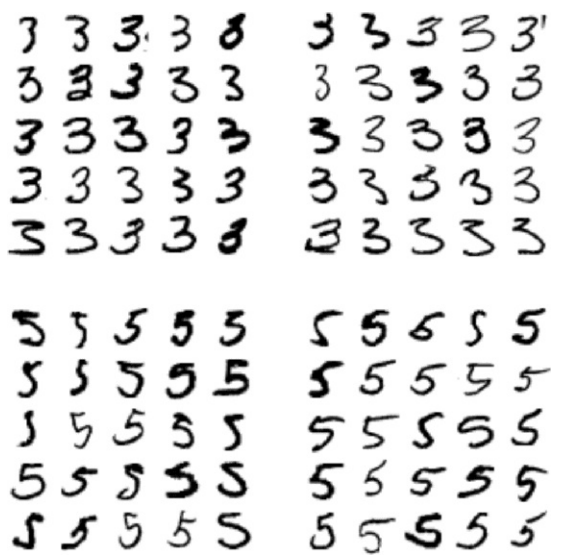 3 3 3 3 3
3 3 3 3 3
3 3 3 3 3
3 3 3 3 3
3 3 3 3 3
3 3 3 3 3
3 3 3 3 3
3 3 3 3 3
3 3 3 3 3
3 3 3 3 3
5 5 5 5 5
5 5 5 5 5
5 5 5 5 5
5 5 5 5 5
5 5 5 5 5
5 5 5 5 5
5 5 5 5 5
5 5 5 5 5
5 5 5 5 5
5 5 5 5 5